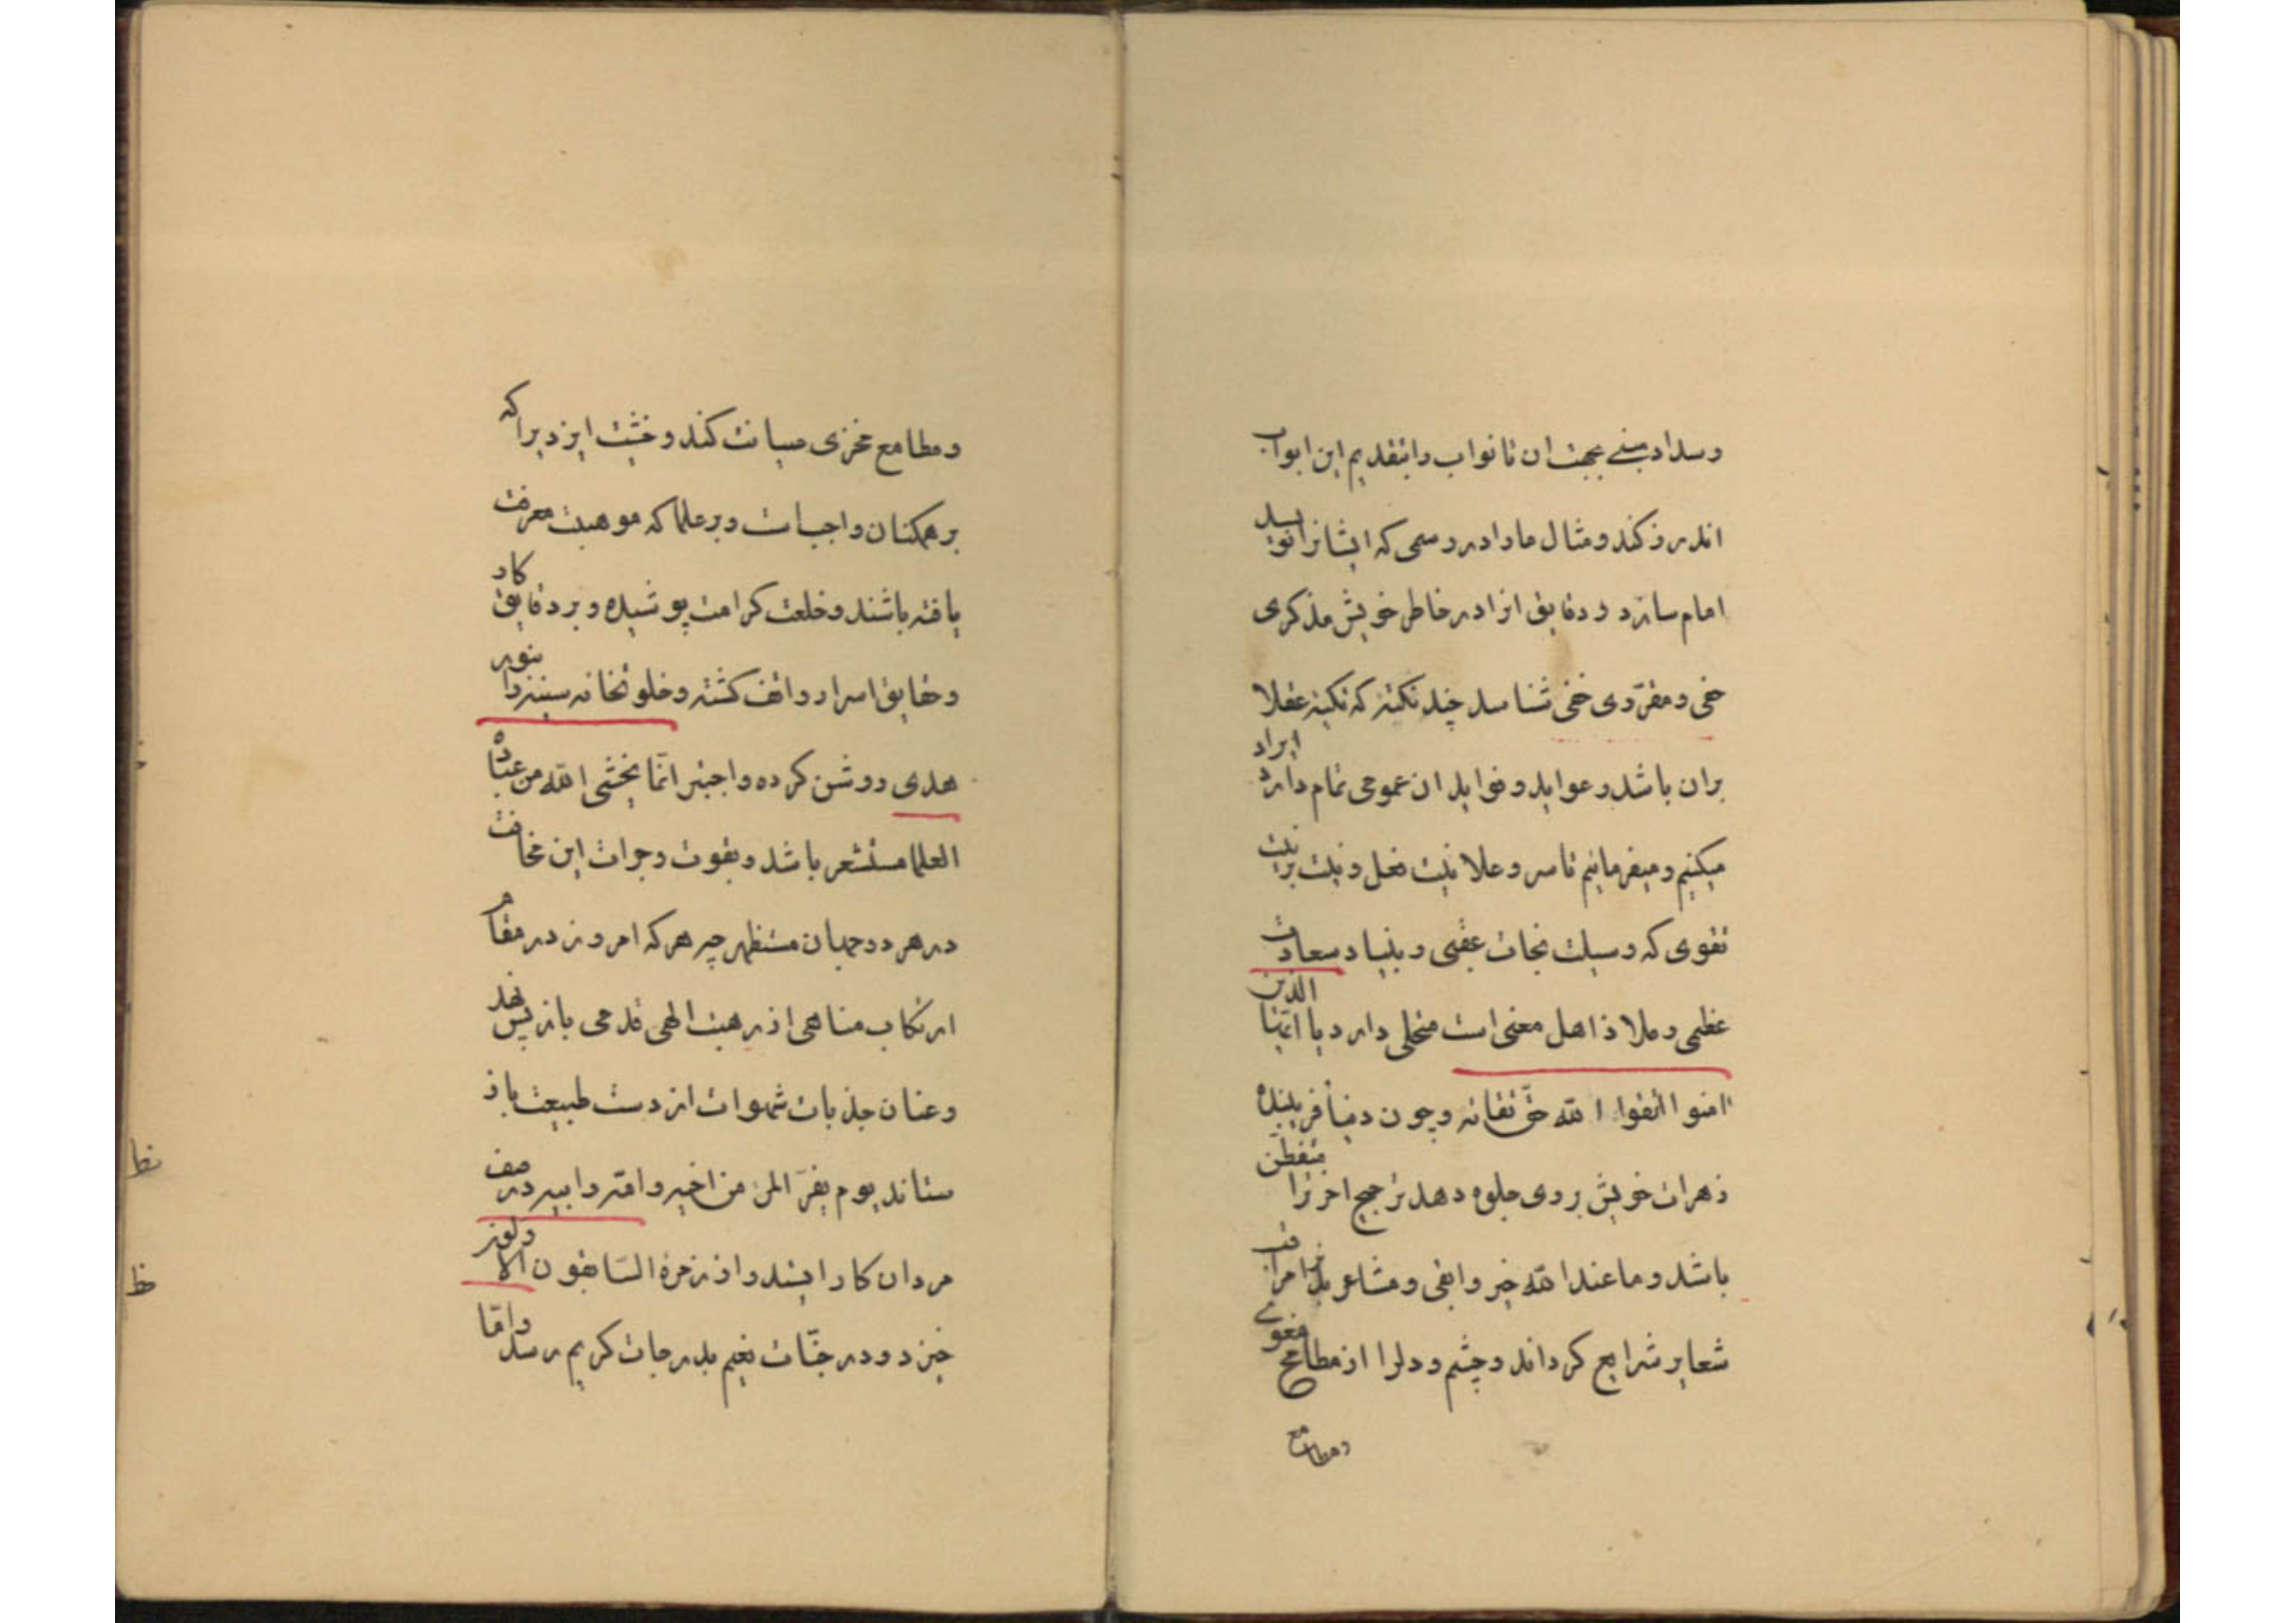 وسداد مبنی بحجت ان تا نواب را بتقدیم این ابواب
اندرز کند و مثال ما را دررسمی که ایشانرا نوید
امام سازد و دقایق انرا در خاطر خویش مذکری
خفی و مقرّوی خفی شناسد چند نکته که نکته عقلا
بران باشد و عواید و فواید ان عمومی تمام دارد ایراد
میکنیم و میفرمائیم تا سر و علانیت فعل و نیت برتب
تقوی که وسیلت نجات عقبی و بنیاد سعادت
عظمی و ملاذ اهل معنی است متحلی دارد یا ایّها الذین
امنوا اتقوا الله حقّ تقاته و چون دنیا فریبنده
زهرات خویش بروی جلوه دهد ترجیح اخرترا متفطّن
باشد و ما عند الله خیر و ابقی و مشاعر بدن مراقب
شعایر شرایع کرداند و چشم و دلرا از مطامح مغوی
ومطامع
ومطامع مخزی صیانت کند و خشیت ایزد براکه
بر همکنان واجبات و بر علما که موهبت معرفت
یافته باشند و خلعت کرامت پوشیده و بر دقایق کار
و حقایق اسرار واقف کشته و خلوتخانه سینه را بنور
هدی روشن کرده واجبتر انّما یخشی الله من عباده
العلما مستشعر باشد و بقوت و جرات این مخافت
در هر دو جهان مستظهر چه هر که امروز در مقام
ارتکاب مناهی از رهبت الهی قدمی بازپس نهد
و عنان جذبات شهوات از دست طبیعت باز
ستاند یوم یفرّ المرء من اخیه و امّه و ابیه در صف
مردان کار ایستد و از زمرهٔ السّابقون الاولون
خیزد و در جنّات نعیم بدرجات کریم رسد و امّا